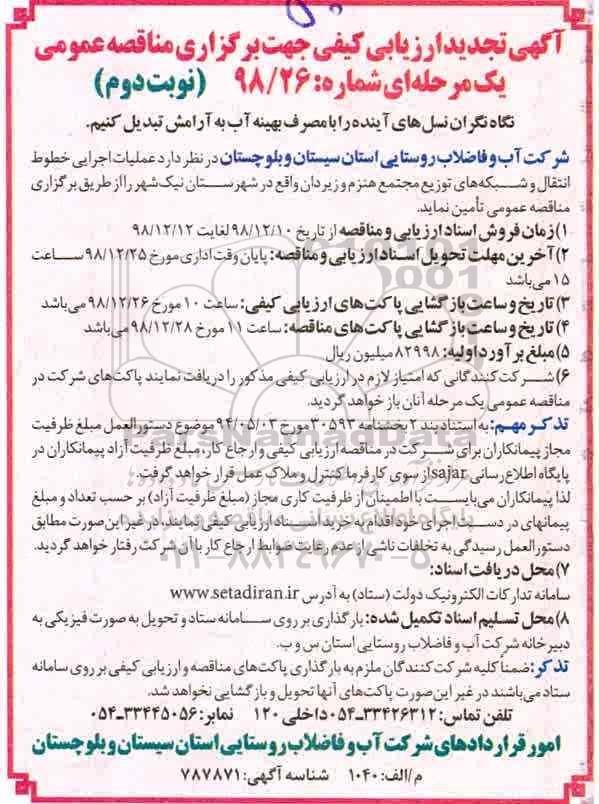 آگهی تجدید ارزیابی کیفی جهت برگزاری مناقصه عمومی
یک مرحله‌ای شماره: ۹۸/۲۶ (نوبت دوم)
نگاه نگران نسل‌های آینده را با مصرف بهینه آب به آرامش تبدیل کنیم.
شرکت آب و فاضلاب روستایی استان سیستان و بلوچستان در نظر دارد عملیات اجرایی خطوط
انتقال و شبکه‌های توزیع مجتمع هنزم و زیردان واقع در شهرستان نیک‌شهر را از طریق برگزاری
مناقصه عمومی تأمین نماید.
۱) زمان فروش اسناد ارزیابی و مناقصه از تاریخ ۹۸/۱۲/۱۰ لغایت ۹۸/۱۲/۱۲
۲) آخرین مهلت تحویل اسناد ارزیابی و مناقصه: پایان وقت اداری مورخ ۹۸/۱۲/۲۵ ساعت
۱۵ می‌باشد
۳) تاریخ و ساعت بازگشایی پاکت‌های ارزیابی کیفی: ساعت ۱۰ مورخ ۹۸/۱۲/۲۶ می‌باشد
۴) تاریخ و ساعت بازگشایی پاکت‌های مناقصه: ساعت ۱۱ مورخ ۹۸/۱۲/۲۸ می‌باشد
۵) مبلغ برآورد اولیه: ۸۲۹۹۸ میلیون ریال
۶) شرکت‌کنندگانی که امتیاز لازم در ارزیابی کیفی مذکور را دریافت نمایند پاکت‌های شرکت در
مناقصه عمومی یک مرحله آنان باز خواهد گردید.
تذکر مهم: به استناد بند ۲ بخشنامه ۳۰۵۹۳ مورخ ۹۴/۰۵/۰۳ موضوع دستورالعمل مبلغ ظرفیت
مجاز پیمانکاران برای شرکت در مناقصه ارزیابی کیفی و ارجاع کار، مبلغ ظرفیت آزاد پیمانکاران در
پایگاه اطلاع‌رسانی sajar از سوی کارفرما کنترل و ملاک عمل قرار خواهد گرفت.
لذا پیمانکاران می‌بایست با اطمینان از ظرفیت کاری مجاز (مبلغ ظرفیت آزاد) بر حسب تعداد و مبلغ
پیمانهای در دست اجرای خود اقدام به خرید اسناد ارزیابی کیفی نمایند، در غیر این صورت مطابق
دستورالعمل رسیدگی به تخلفات ناشی از عدم رعایت ضوابط ارجاع کار با آن شرکت رفتار خواهد گردید.
۷) محل دریافت اسناد:
سامانه تدارکات الکترونیک دولت (ستاد) به آدرس www.setadiran.ir
۸) محل تسلیم اسناد تکمیل شده: بارگذاری بر روی سامانه ستاد و تحویل به صورت فیزیکی به
دبیرخانه شرکت آب و فاضلاب روستایی استان س و ب.
تذکر: ضمناً کلیه شرکت‌کنندگان ملزم به بارگذاری پاکت‌های مناقصه و ارزیابی کیفی بر روی سامانه
ستاد می‌باشند در غیر این صورت پاکت‌های آنها تحویل و بازگشایی نخواهد شد.
تلفن تماس: ۳۳۴۲۶۳۱۲-۰۵۴ داخلی ۱۲۰ نمابر: ۳۳۴۴۵۰۵۶-۰۵۴
امور قراردادهای شرکت آب و فاضلاب روستایی استان سیستان و بلوچستان
م/الف: ۱۰۴۰ شناسه آگهی: ۷۸۷۸۷۱
ParsNamadData
۰۲۱-۸۸۳۴۹۶۷۰-۵